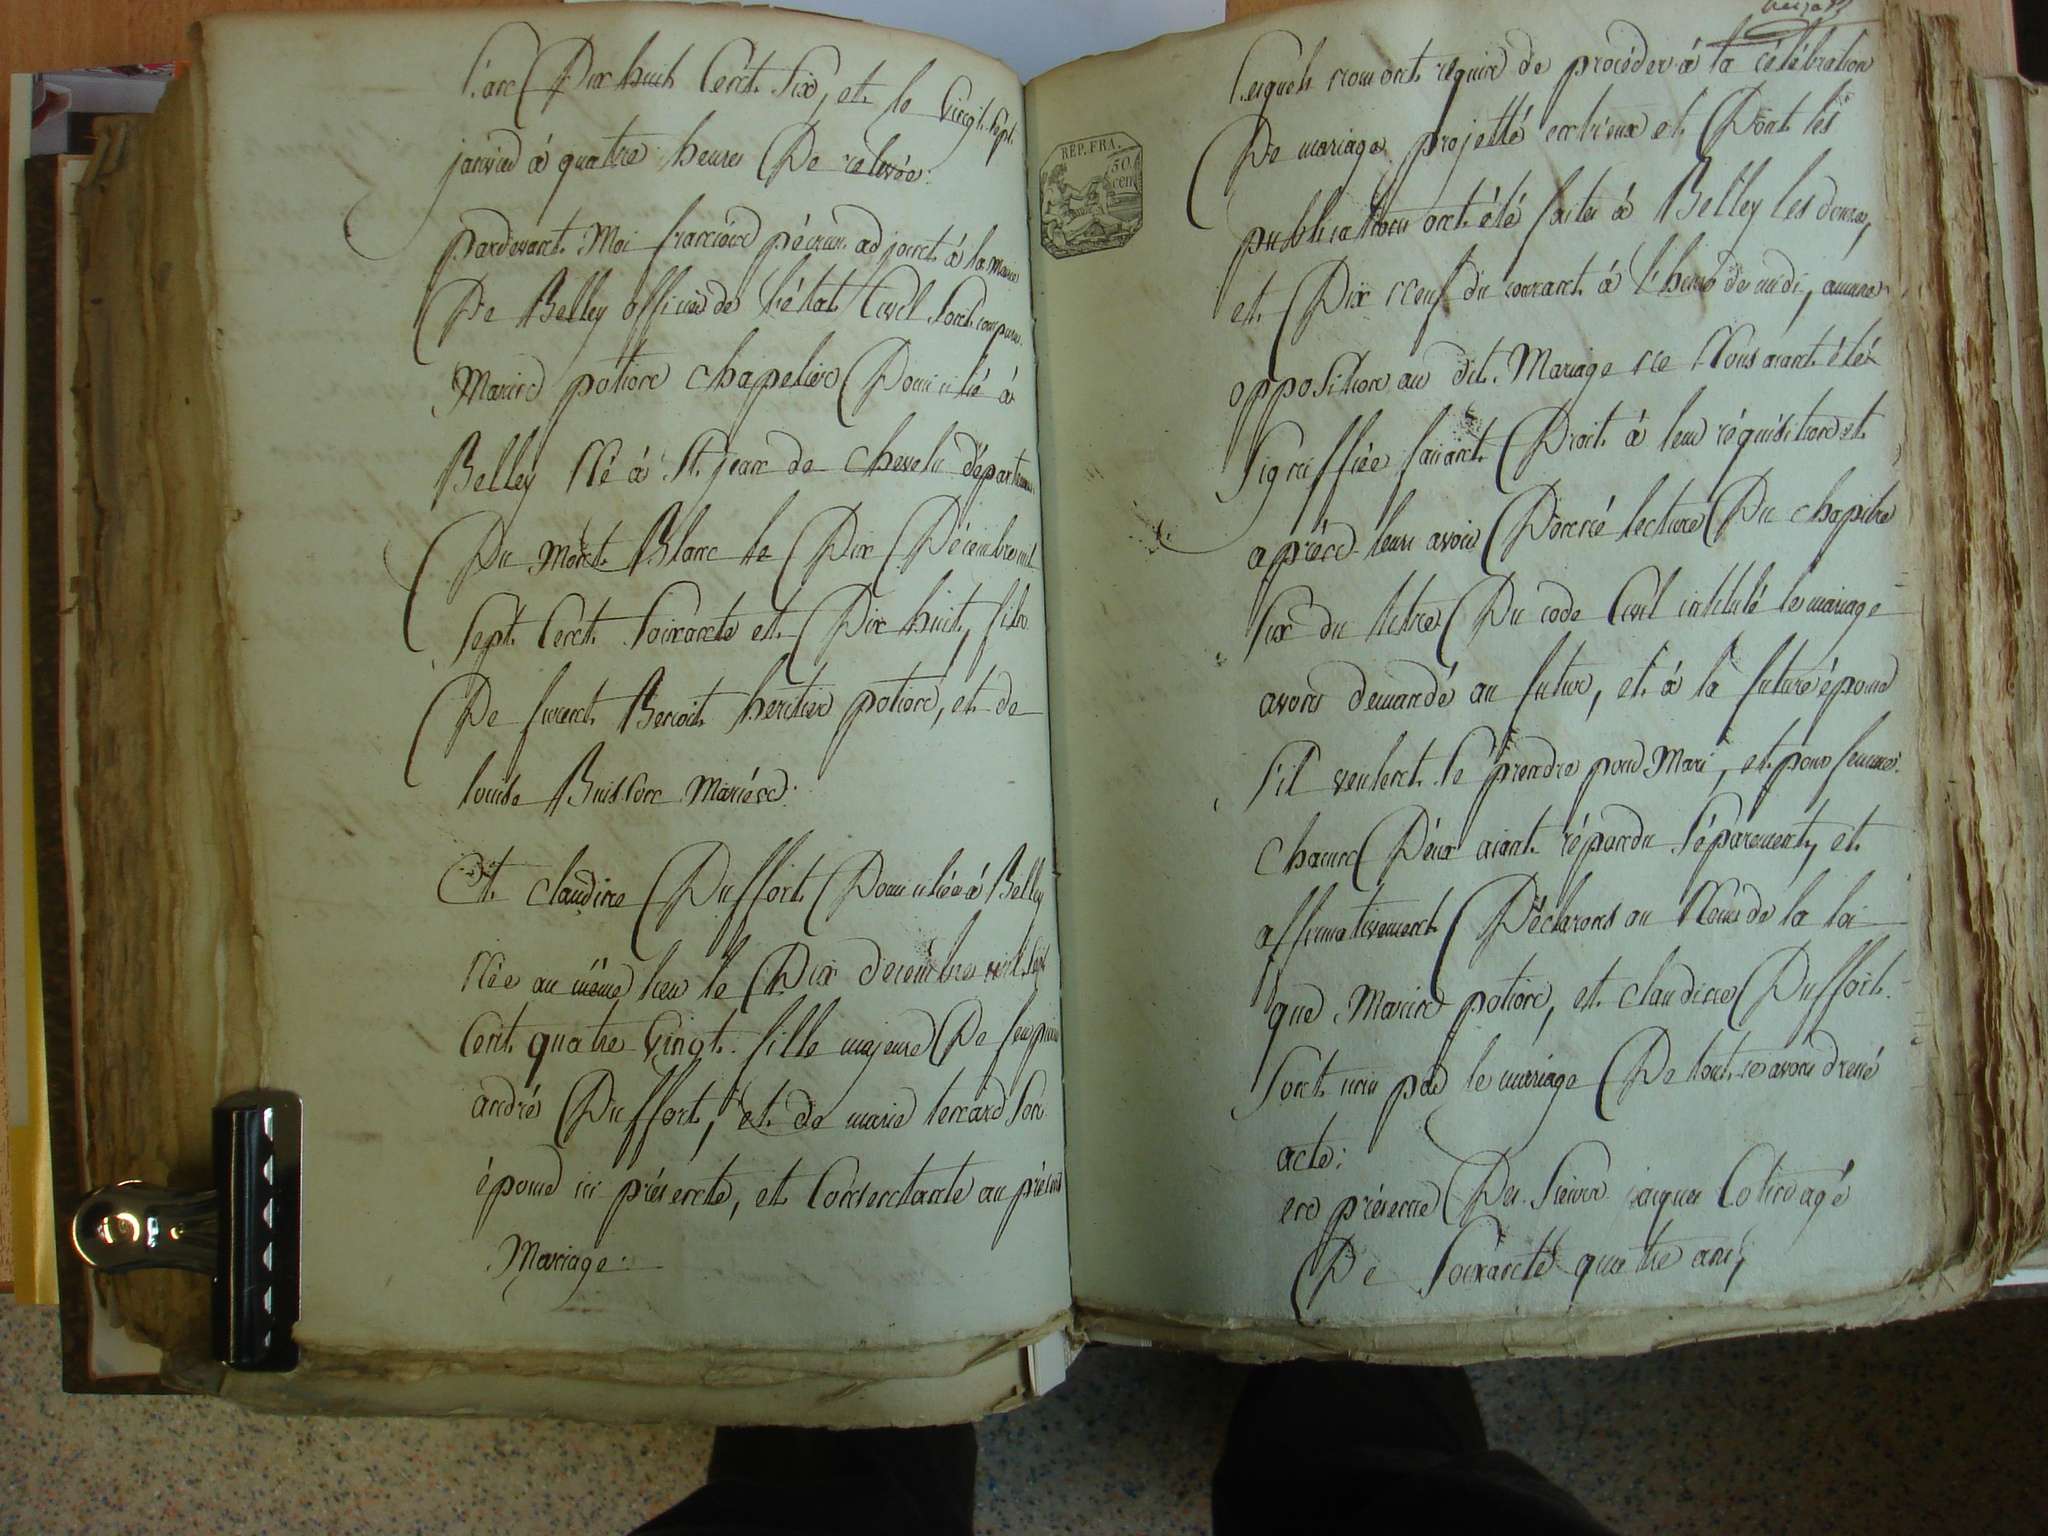 L'an Dix huit Cent Six, et le Vingt Sept
janvier à quatre heures De relevée.
pardevant Moi francois pécour adjoint à la Mairie
De Belley officier de l'état Civil Sont comparus
Marin potion chapelier Domicilié à
Belley Né à St. jean de chevelu départemen
Du Mont Blanc le Dix Décembre mil
Sept Cent Soixante et Dix huit, fils
De furent Benoit heritier potion, et de
louise Buisson Mariés.
Et claudine Duffort Domiciliée à Belley
Née au même lieu le Dix decembre mil Sept
Cent quatre Vingt fille majeure De feu pierre
andré Duffort, et de marie tenard Son
épouse ici présente, et Consentante au présent
Mariage.
REP. FRA.
50
cen
Lesquels nous ont requis de procéder à la célébration
De mariage projetté entr'eux et Dont les
publications ont été faites à Belley les douze,
et Dix neuf du courant à l'heure de midi, aucune
opposition au dit Mariage ne Nous aiant été
Signiffiée faisant Droit à leur réquisition et
après leurs avoir Donné lecture Du chapitre
Six du titre Du code Civil intitulé le mariage
avons demandé au futur, et à la future épouse
S'il veulent Se prendre pour Mari, et pour femme.
chacun D'eux aiant répondu Séparement, et
affirmativement Déclarons au Nom de la loi
que Marin potion, et claudine Duffort
Sont unis par le mariage De tout ce avons dressé
acte:
en présence Des Sieurs jaques Cotin agé
De Soixante quatre ans,